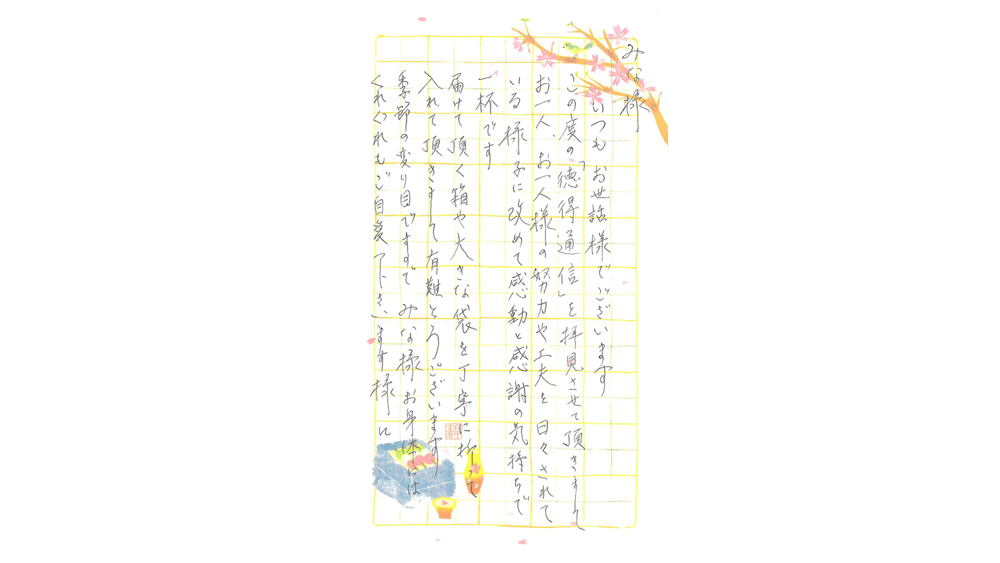 みな様
いつもお世話様でございます
この度の「徳得通信」を拝見させて頂きまして
お一人、お一人様の努力や工夫を日々されて
いる様子に改めて感動と感謝の気持ちで
一杯です
届けて頂く箱や大きな袋を丁寧に折って
入れて頂きまして有難とうございます
季節の変り目ですので みな様お身体には
くれぐれもご自愛下さいます様に